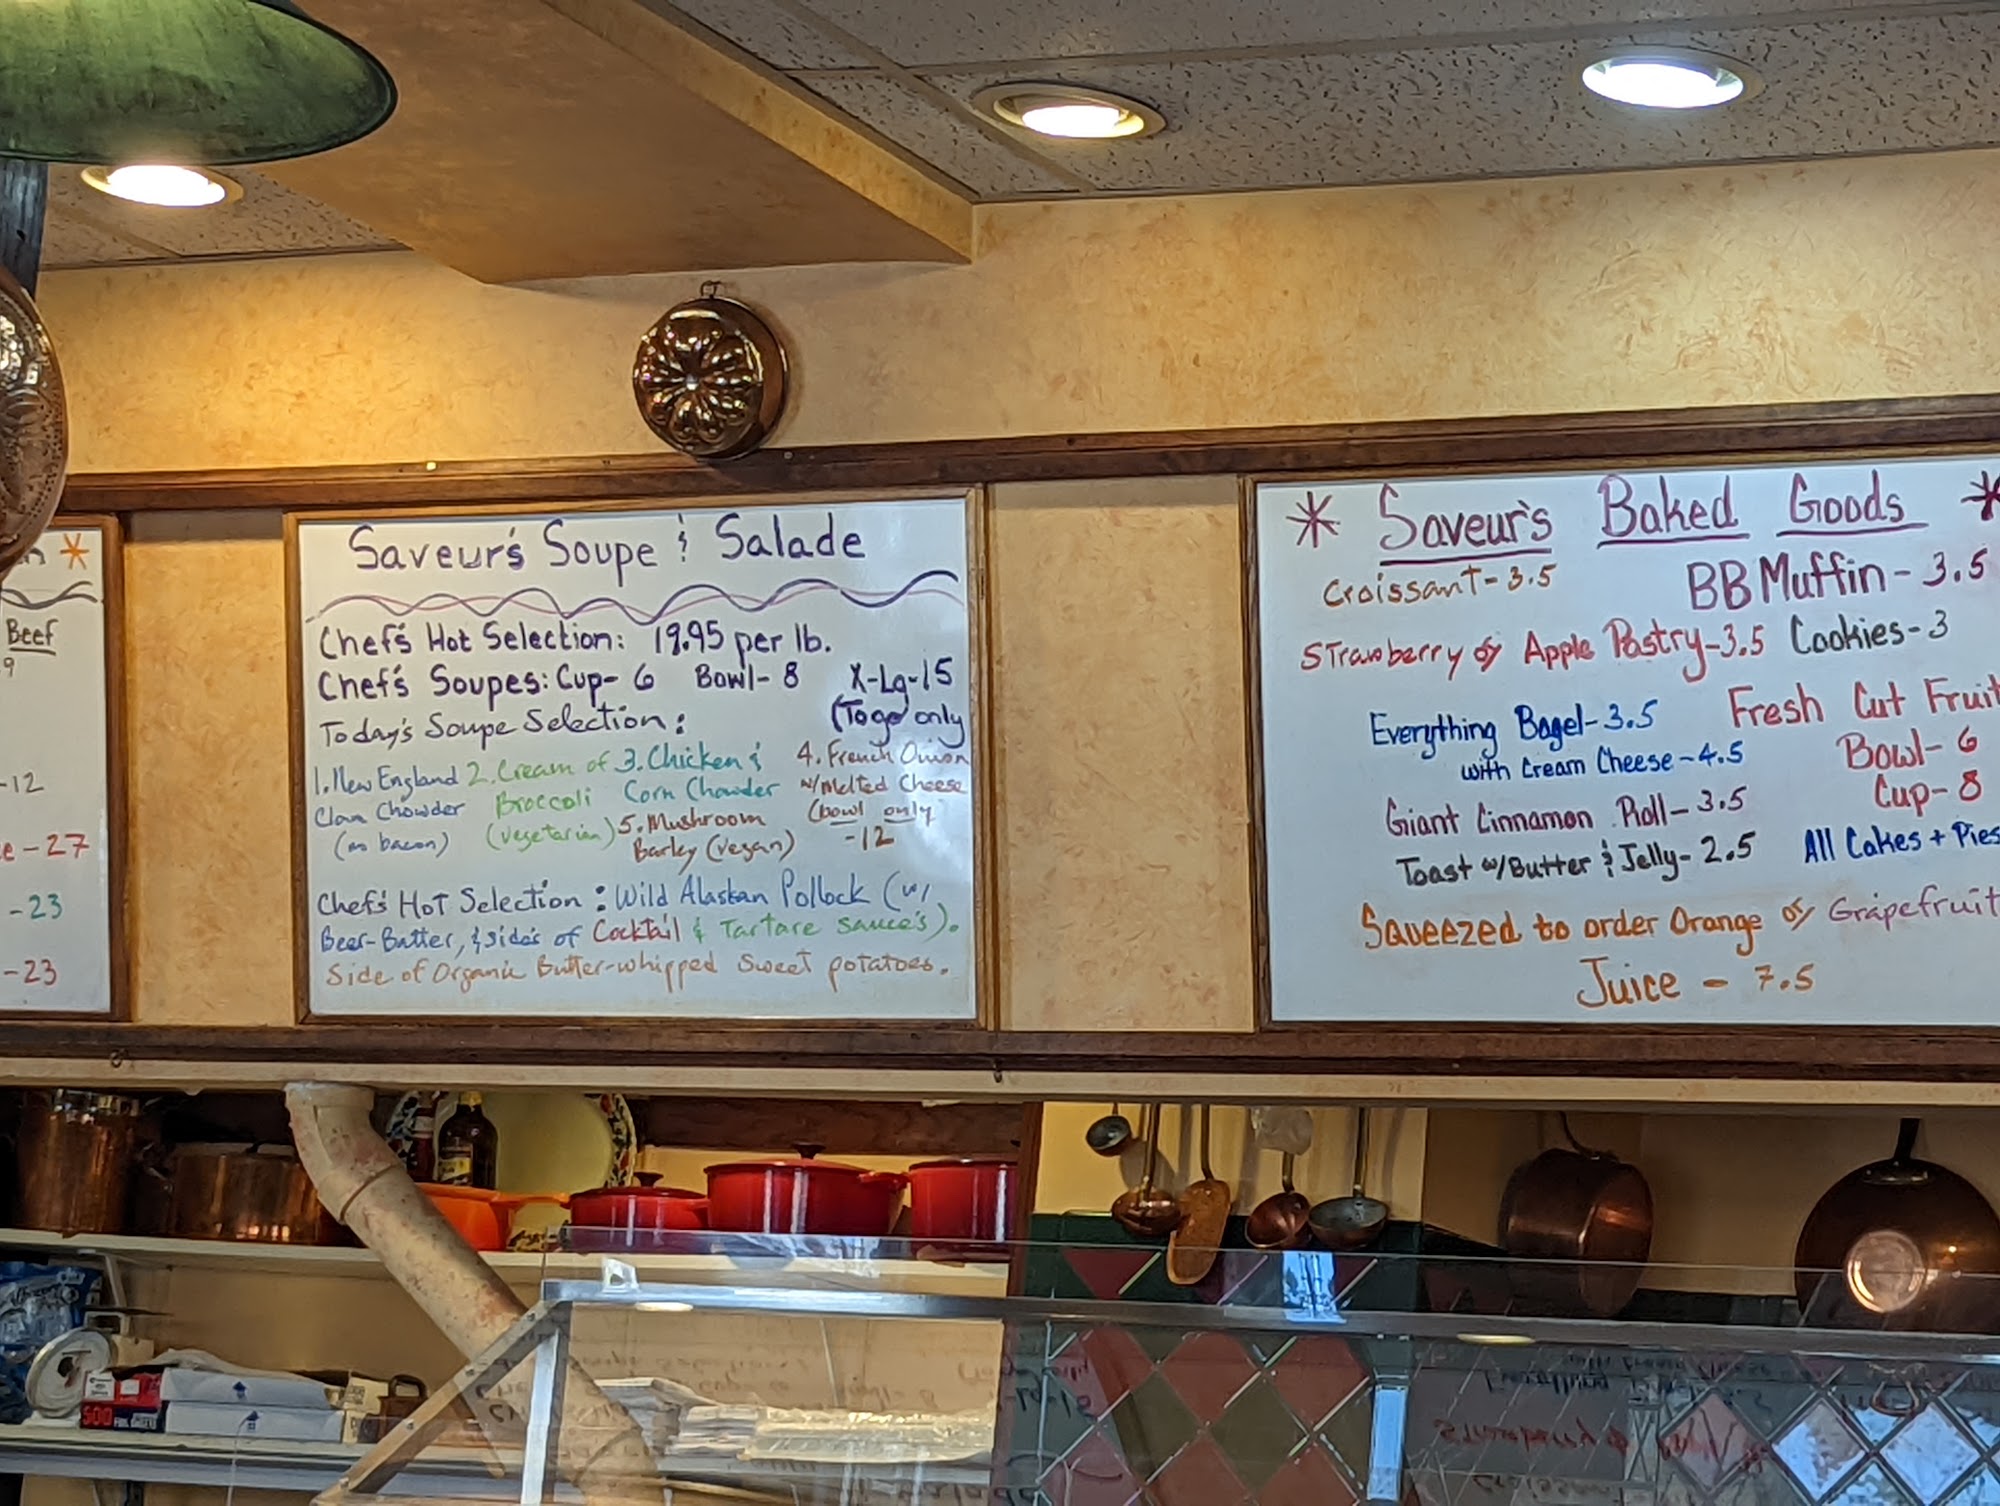 Beef
9
-12
e - 27
- 23
- 23
Saveur's Soupe & Salade
Chef's Hot Selection: 19.95 per lb.
Chef's Soupes: Cup- 6 Bowl- 8 X-Lg-15
(To go only
Today's Soupe Selection:
1. New England
Clam Chowder
(no bacon)
2. Cream of
Broccoli
(vegetarian)
3. Chicken &
Corn Chowder
5. Mushroom
Barley (vegan)
4. French Onion
w/Melted Cheese
(bowl only
-12
Chef's Hot Selection: Wild Alaskan Pollock (w/
Beer-Batter, & side's of Cocktail & Tartare sauce's).
Side of Organic Butter-whipped Sweet potatoes.
* Saveur's Baked Goods *
Croissant- 3.5 BB Muffin- 3.5
Strawberry or Apple Pastry-3.5 Cookies-3
Everything Bagel-3.5
with Cream Cheese-4.5
Fresh Cut Fruit
Bowl- 6
Cup- 8
Giant Cinnamon Roll- 3.5
Toast w/Butter & Jelly- 2.5 All Cakes + Pies
Squeezed to order Orange or Grapefruit
Juice - 7.5
500